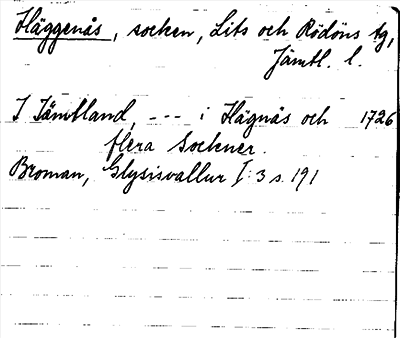 Häggenås, socken, Lits och Rödöns tg,
Jämtl. l.
I Jämtland, --- i Hägnäs och 1726
flera Sockner.
Broman, Glysisvallur I:3 s. 191